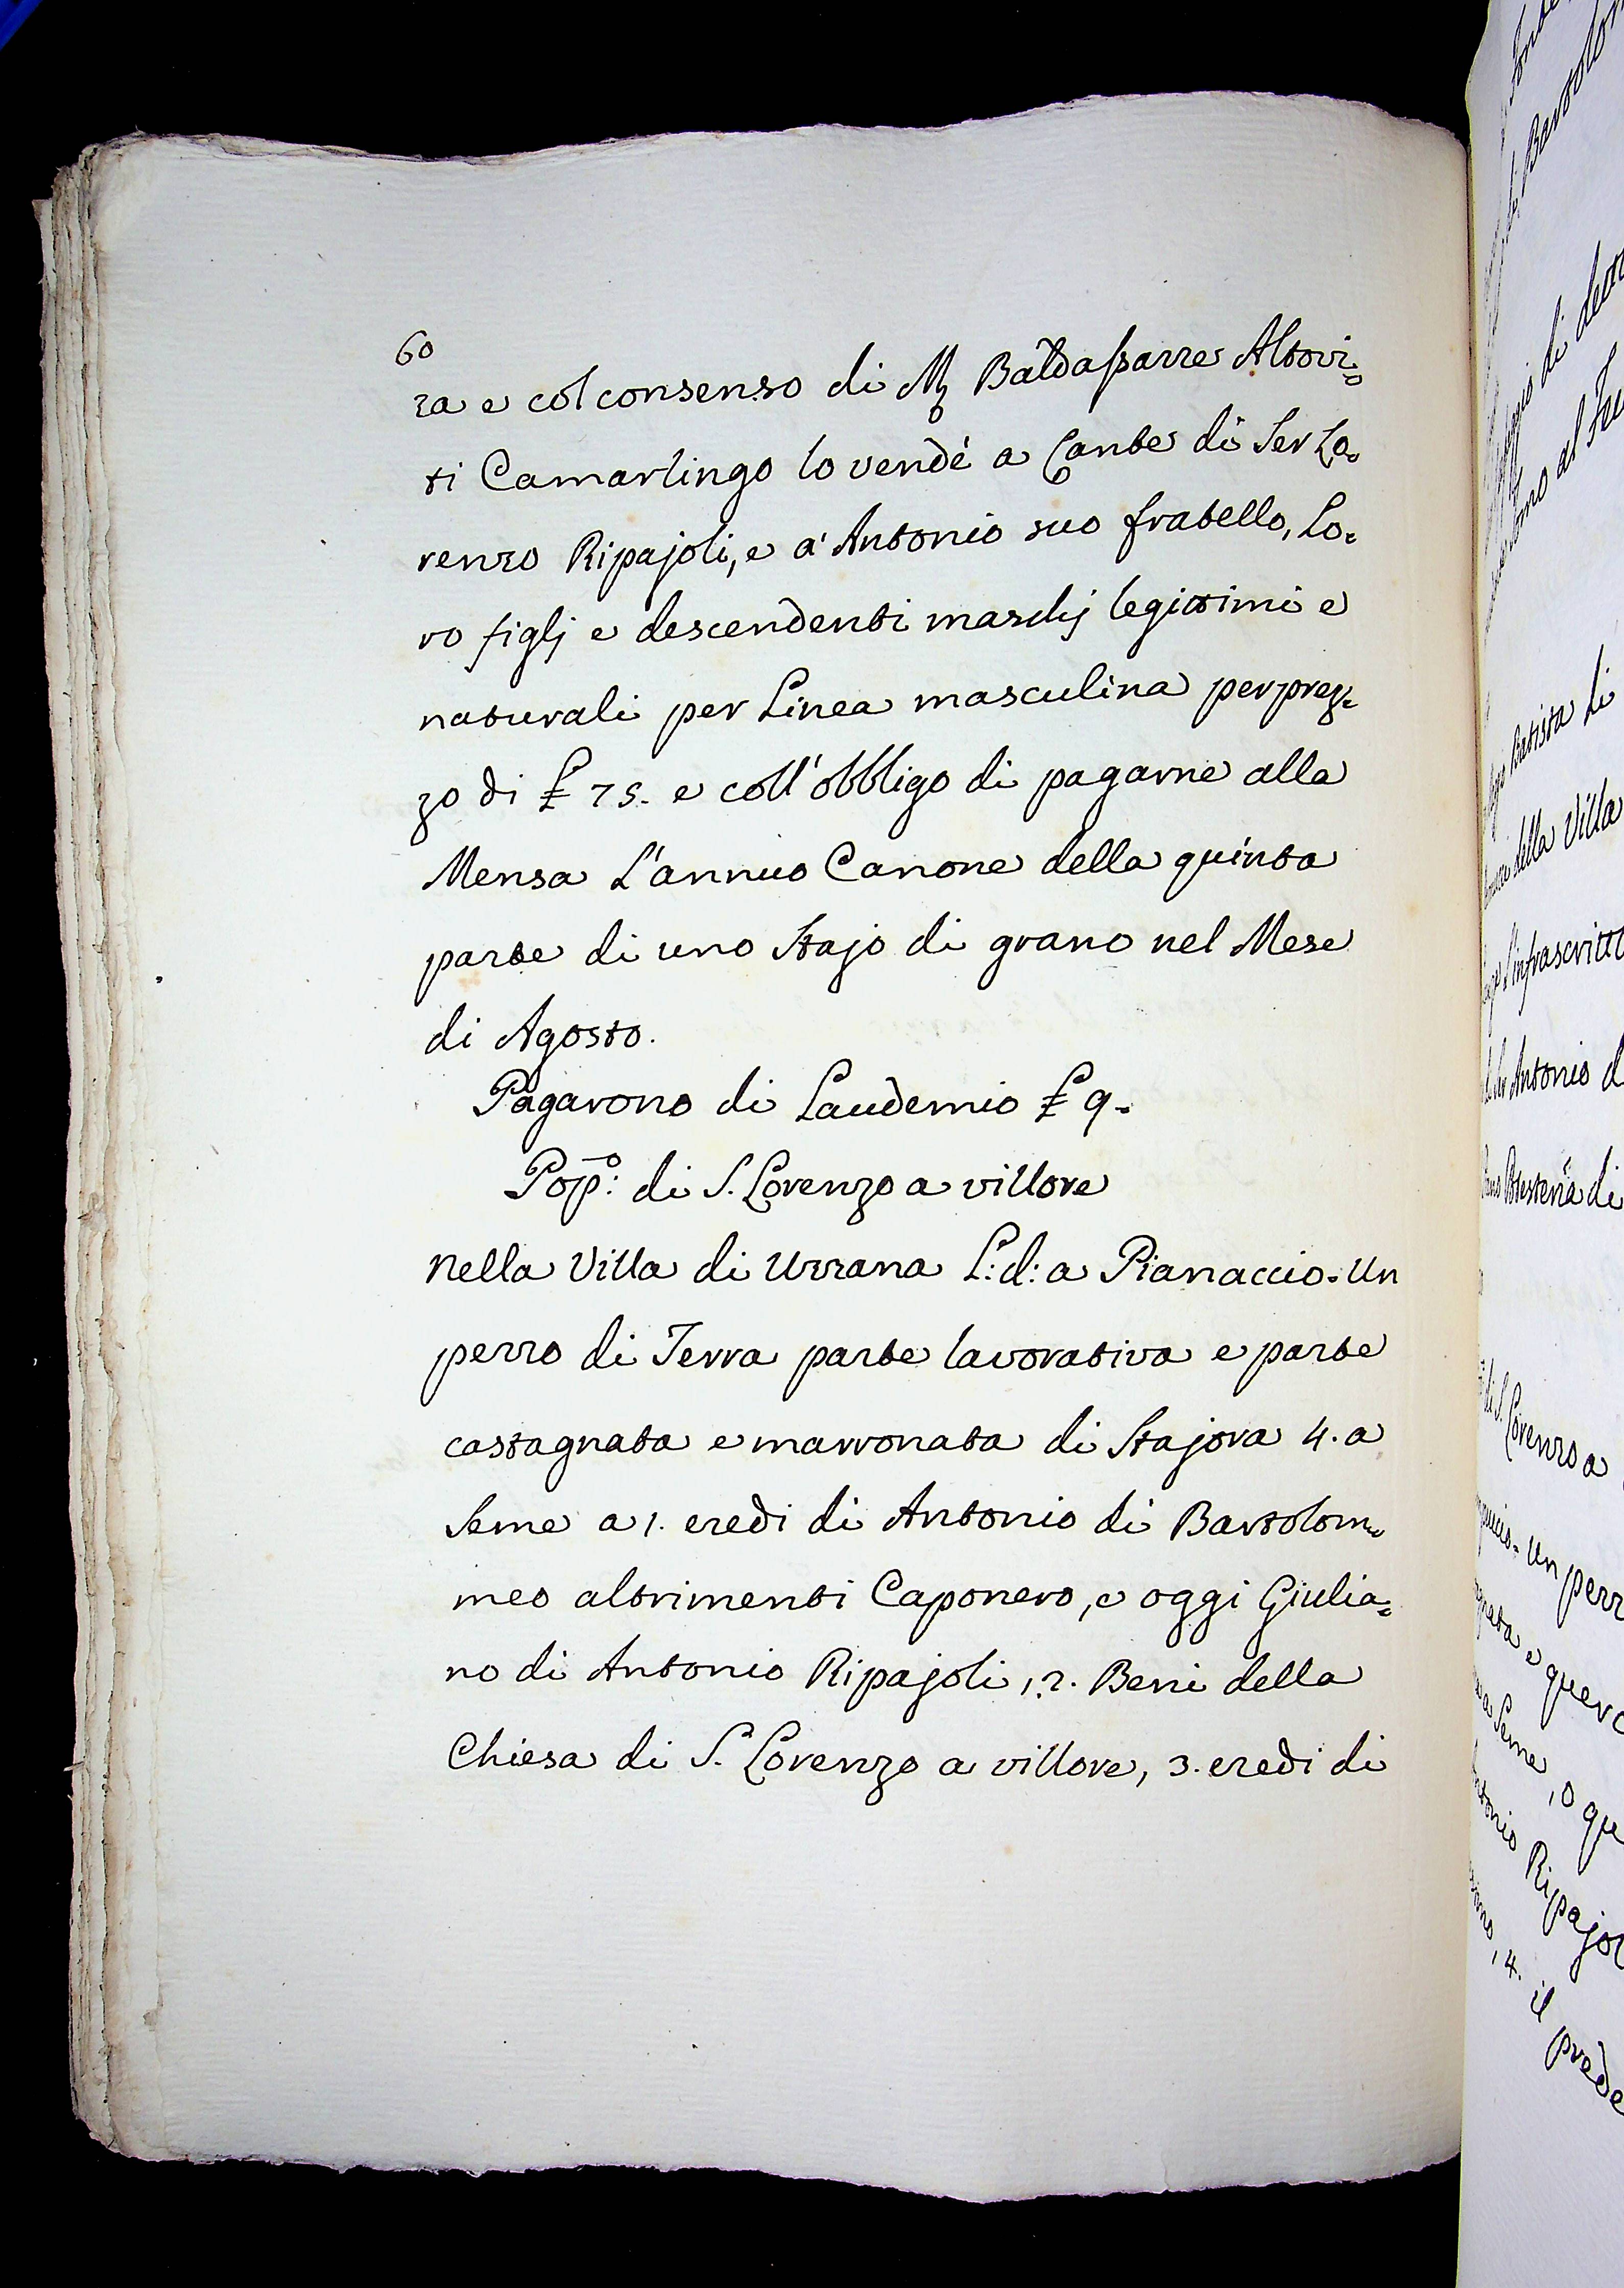 60
za e col consenso di M Baldassarre Altovi=
ti Camarlingo lo vendè a Cante di Ser Lo=
renzo Ripajoli, e a' Antonio suo fratello, Lo=
ro figlj e descendenti maschj legittimi e
naturali per Linea masculina per prez=
zo di £ 75. e coll'obbligo di pagarne alla
Mensa L'annuo Canone della quinta
parte di uno Stajo di grano nel Mese
di Agosto.
Pagarono di Laudemio £ 9.
Pop:º di S. Lorenzo a villore
Nella Villa di Uzzana L: d: a Pianaccio. Un
pezzo di Terra parte lavorativa e parte
castagnata e marronata di Stajora 4. a
Seme a 1. eredi di Antonio di Bartolom=
meo altrimenti Caponero, e oggi Giulia=
no di Antonio Ripajoli, 2. Beni della
Chiesa di S. Lorenzo a villore, 3. eredi di
di detto
Batista di
della Villa
L'infrascritto
Antonio d
di
di S. Lorenzo a
Un pezz
e querc
Seme, o qu
Ripajol
, 4. il prede